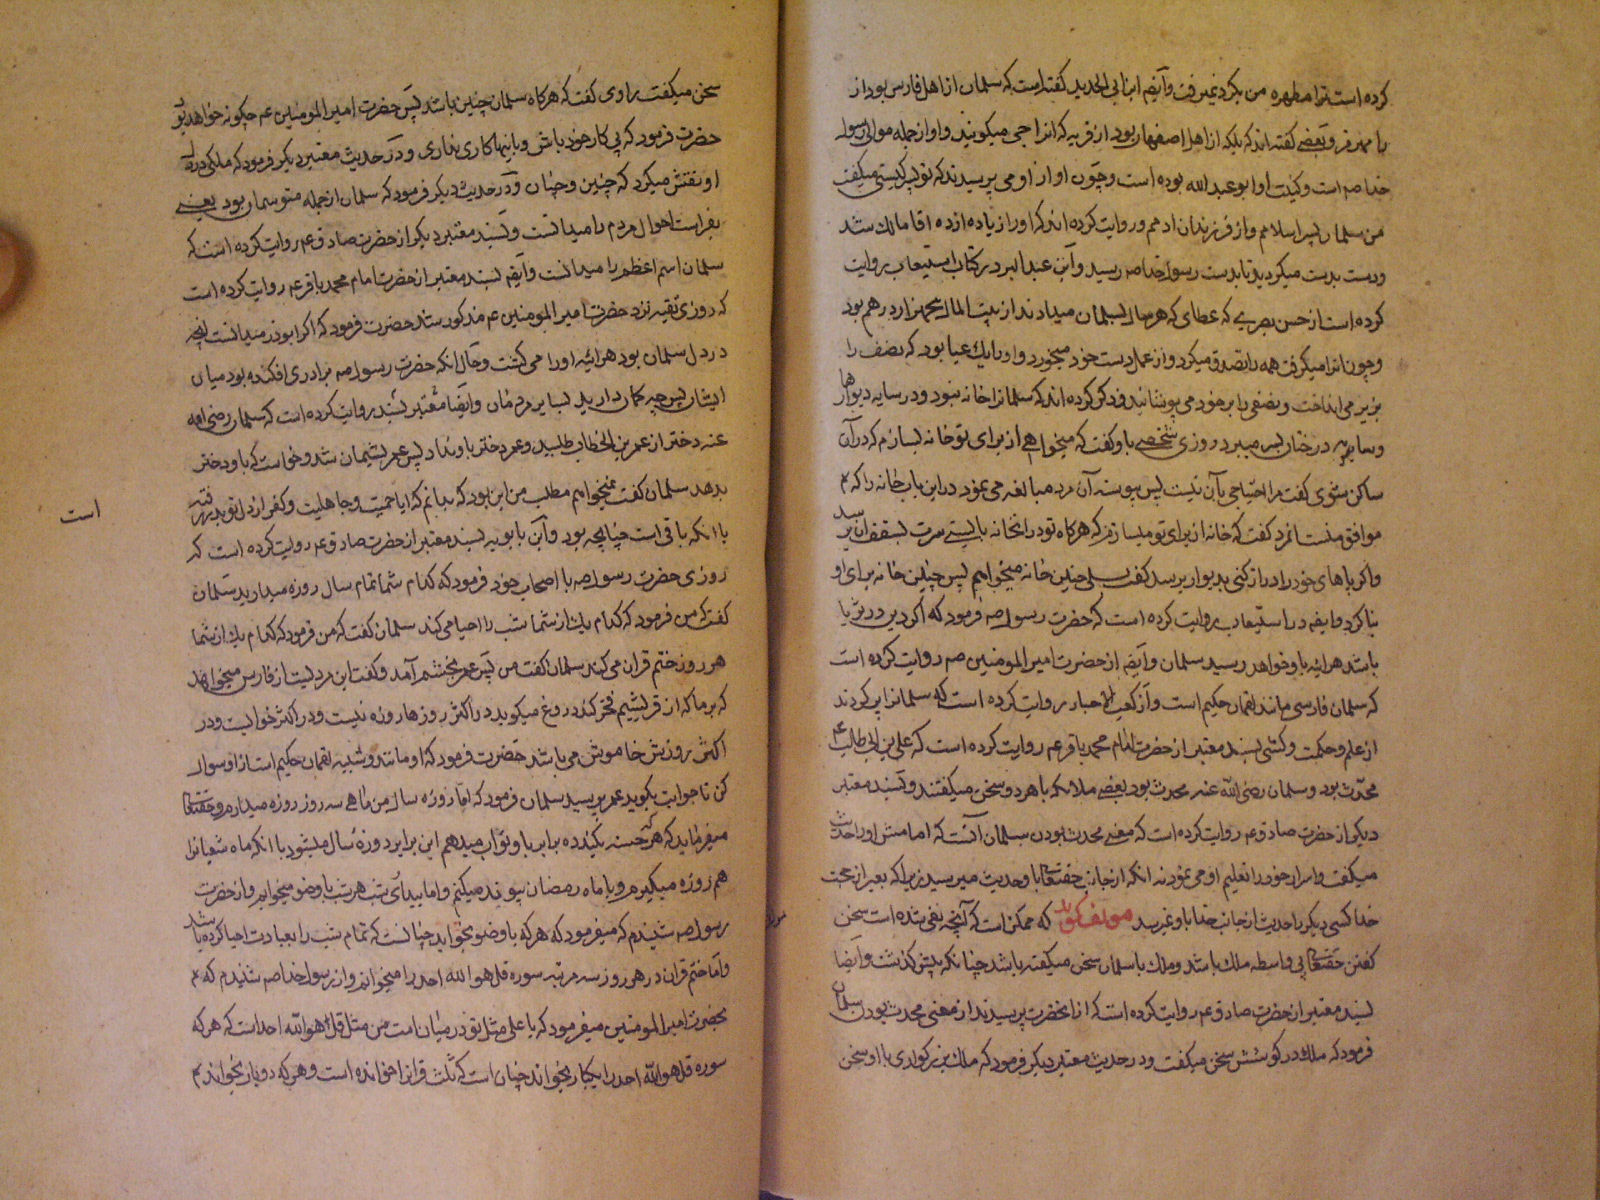 کرده است ترا مطهره من بکرد نمیرفت وایضا ابن ابی الحدید کفته است که سلمان از اهل فارس بود از
رامهرمز و بعضی کفته اند که بلکه از اهل اصفهان بود از قریه که انرا جی میکویند و او از جمله موالی رسول
خدا صم است و کنیت او ابو عبد الله بوده است وچون او از او می پرسیدند که تو پسر کیستی میکفت
من سلمان پسر اسلامم و از فرزندان ادمم و روایت کرده اند که او را زیاده از ده اقا مالک شد
ودست بدست میکردید تا بدست رسول خدا صم رسید و ابن عبد البر در کتاب استیعاب روایت
کرده است از حسن بصری که عطای که هر سال بسلمان میدادند از بیت المال پنجهزار درهم بود
وچون انرا میکرفت همه را تصدق میکرد و از عمل دست خود میخورد و او را یک عبا بود که نصف را
بزیر می انداخت و نصفی را بر خود می پوشانید و ذکر کرده اند که سلمانرا خانه نبود و در سایه دیوارها
وسایه درختان بسر میبرد روزی شخصی باو کفت که میخواهی از برای تو خانه بسازم که در آن
ساکن شوی کفت مرا احتیاجی بآن نیست پس پیوسته آن مرد مبالغه می نمود در این باب خانه را که
موافق منست انمرد کفت که خانه از برای تو میسازم که هرکاه تو در انخانه بایستی سرت بسقف ان برسد
واکر پاهای خود را دراز کنی بدیوار برسد کفت بلی چنین خانه میخواهم پس چنین خانه برای او
بنا کرد وایضا در استیعاب روایت کرده است که حضرت رسول صم فرمود که اکر دین در ثریا
باشد هراینه باو خواهد رسید سلمان وایضا از حضرت امیر المومنین صم روایت کرده است
که سلمان فارسی مانند لقمان حکیم است و از کعب الاحبار روایت کرده است که سلمانرا پر کردند
از علم و حکمت و کشی بسند معتبر از حضرت امام محمد باقر عم روایت کرده است که علی بن ابی طالب ع
محدث بود و سلمان رضی الله عنه محدث بود یعنی ملائکه با هر دو سخن میکفتند و بسند معتبر
دیکر از حضرت صادق عم روایت کرده است که معنی محدث بودن سلمان آنست که امامش او را حدیث
میکفت واسرار خود را تعلیم او می نمود نه انکه از جانب حقتعالی باو حدیث میرسید زیرا که بغیر از حجت
خدا کسی دیکر را حدیث از جانب خدا باو نمیرسد مولف کوید که ممکن است که آنچه نفی شده است سخن
کفتن حقتعالی بی واسطه ملک باشد و ملک با سلمان سخن میکفته باشد چنانکه پیش کذشت وایضا
بسند معتبر از حضرت صادق عم روایت کرده است که از انحضرت پرسیدند از معنی محدث بودن سلمان
فرمود که ملک در کوشش سخن میکفت و در حدیث معتبر دیکر فرمود که ملک بزرکواری با او سخن
سخن میکفت راوی کفت که هرکاه سلمان چنین باشد پس حضرت امیر المومنین عم چکونه خواهد بود
حضرت فرمود که پی کار خود باش و باینها کاری نداری و در حدیث معتبر دیکر فرمود که ملکی در دل
او نقش میکرد که چنین و چنان و در حدیث دیکر فرمود که سلمان از جمله متوسمان بود یعنی
بفراست احوال مردم را میدانست و بسند معتبر دیکر از حضرت صادق عم روایت کرده است که
سلمان اسم اعظم را میدانست وایضا بسند معتبر از حضرت امام محمد باقر عم روایت کرده است
که روزی تقیه نزد حضرت امیر المومنین عم مذکور شد حضرت فرمود که اکر ابوذر میدانست انچه
در دل سلمان بود هراینه او را می کشت و حال انکه حضرت رسول صم برادری افکنده بود میان
ایشان پس چه کمان دارید بسایر مردمان وایضا معتبر بسند روایت کرده است که سلمان رضی الله
عنه دختر از عمر بن الخطاب طلبید و عمر دختر باو نداد پس عمر پشیمان شد و خواست که باو دختر
بدهد سلمان کفت نمیخواهم مطلب من این بود که بدانم که ایا حمیت و جاهلیت و کفر از دل تو بدر رفته
یا انکه باقی است چنانچه بود و ابن بابویه بسند معتبر از حضرت صادق عم روایت کرده است که
است
روزی حضرت رسول صم با اصحاب خود فرمود که کدام شما تمام سال روزه میدارید سلمان
کفت که من فرمود که کدام یک از شما شب را احیا می کند سلمان کفت که من فرمود که کدام یک از شما
هر روز ختم قران می کند سلمان کفت من پس عمر بخشم آمد و کفت این مردیست از فارس میخواهد
که بر ما که از قریشیم فخر کند دروغ میکوید در اکثر روزها روزه نیست و در اکثر خوابست و در
اکثر روزش خاموش می باشد حضرت فرمود که او مانند و شبیه لقمان حکیم است از او سوال
کن تا جوابت بکوید عمر پرسید سلمان فرمود که اما روزه سال من ماهی سه روز روزه میدارم و حقتعالی
میفرماید که هر که حسنه بکند ده برابر باو ثواب میدهم این برابر روزه سال میشود با انکه ماه شعبانرا
هم روزه میکیرم و با ماه رمضان پیوند میکنم و اما بیداری شب هر شب با وضو میخوابم و از حضرت
رسول صم شنیدم که میفرمود که هر که با وضو بخوابد چنانست که تمام شب را بعبادت احیا کرده باشد
واما ختم قران در هر روز سه مرتبه سوره قل هو الله احد را میخوانم و از رسول خدا صم شنیدم که
بحضرت امیر المومنین میفرمود که یا علی مثل تو در میان امت من مثل قل هو الله احد است که هر که
سوره قل هو الله احد را یکبار بخواند چنان است که ثلث قرانرا خوانده است و هر که دو بار بخواند